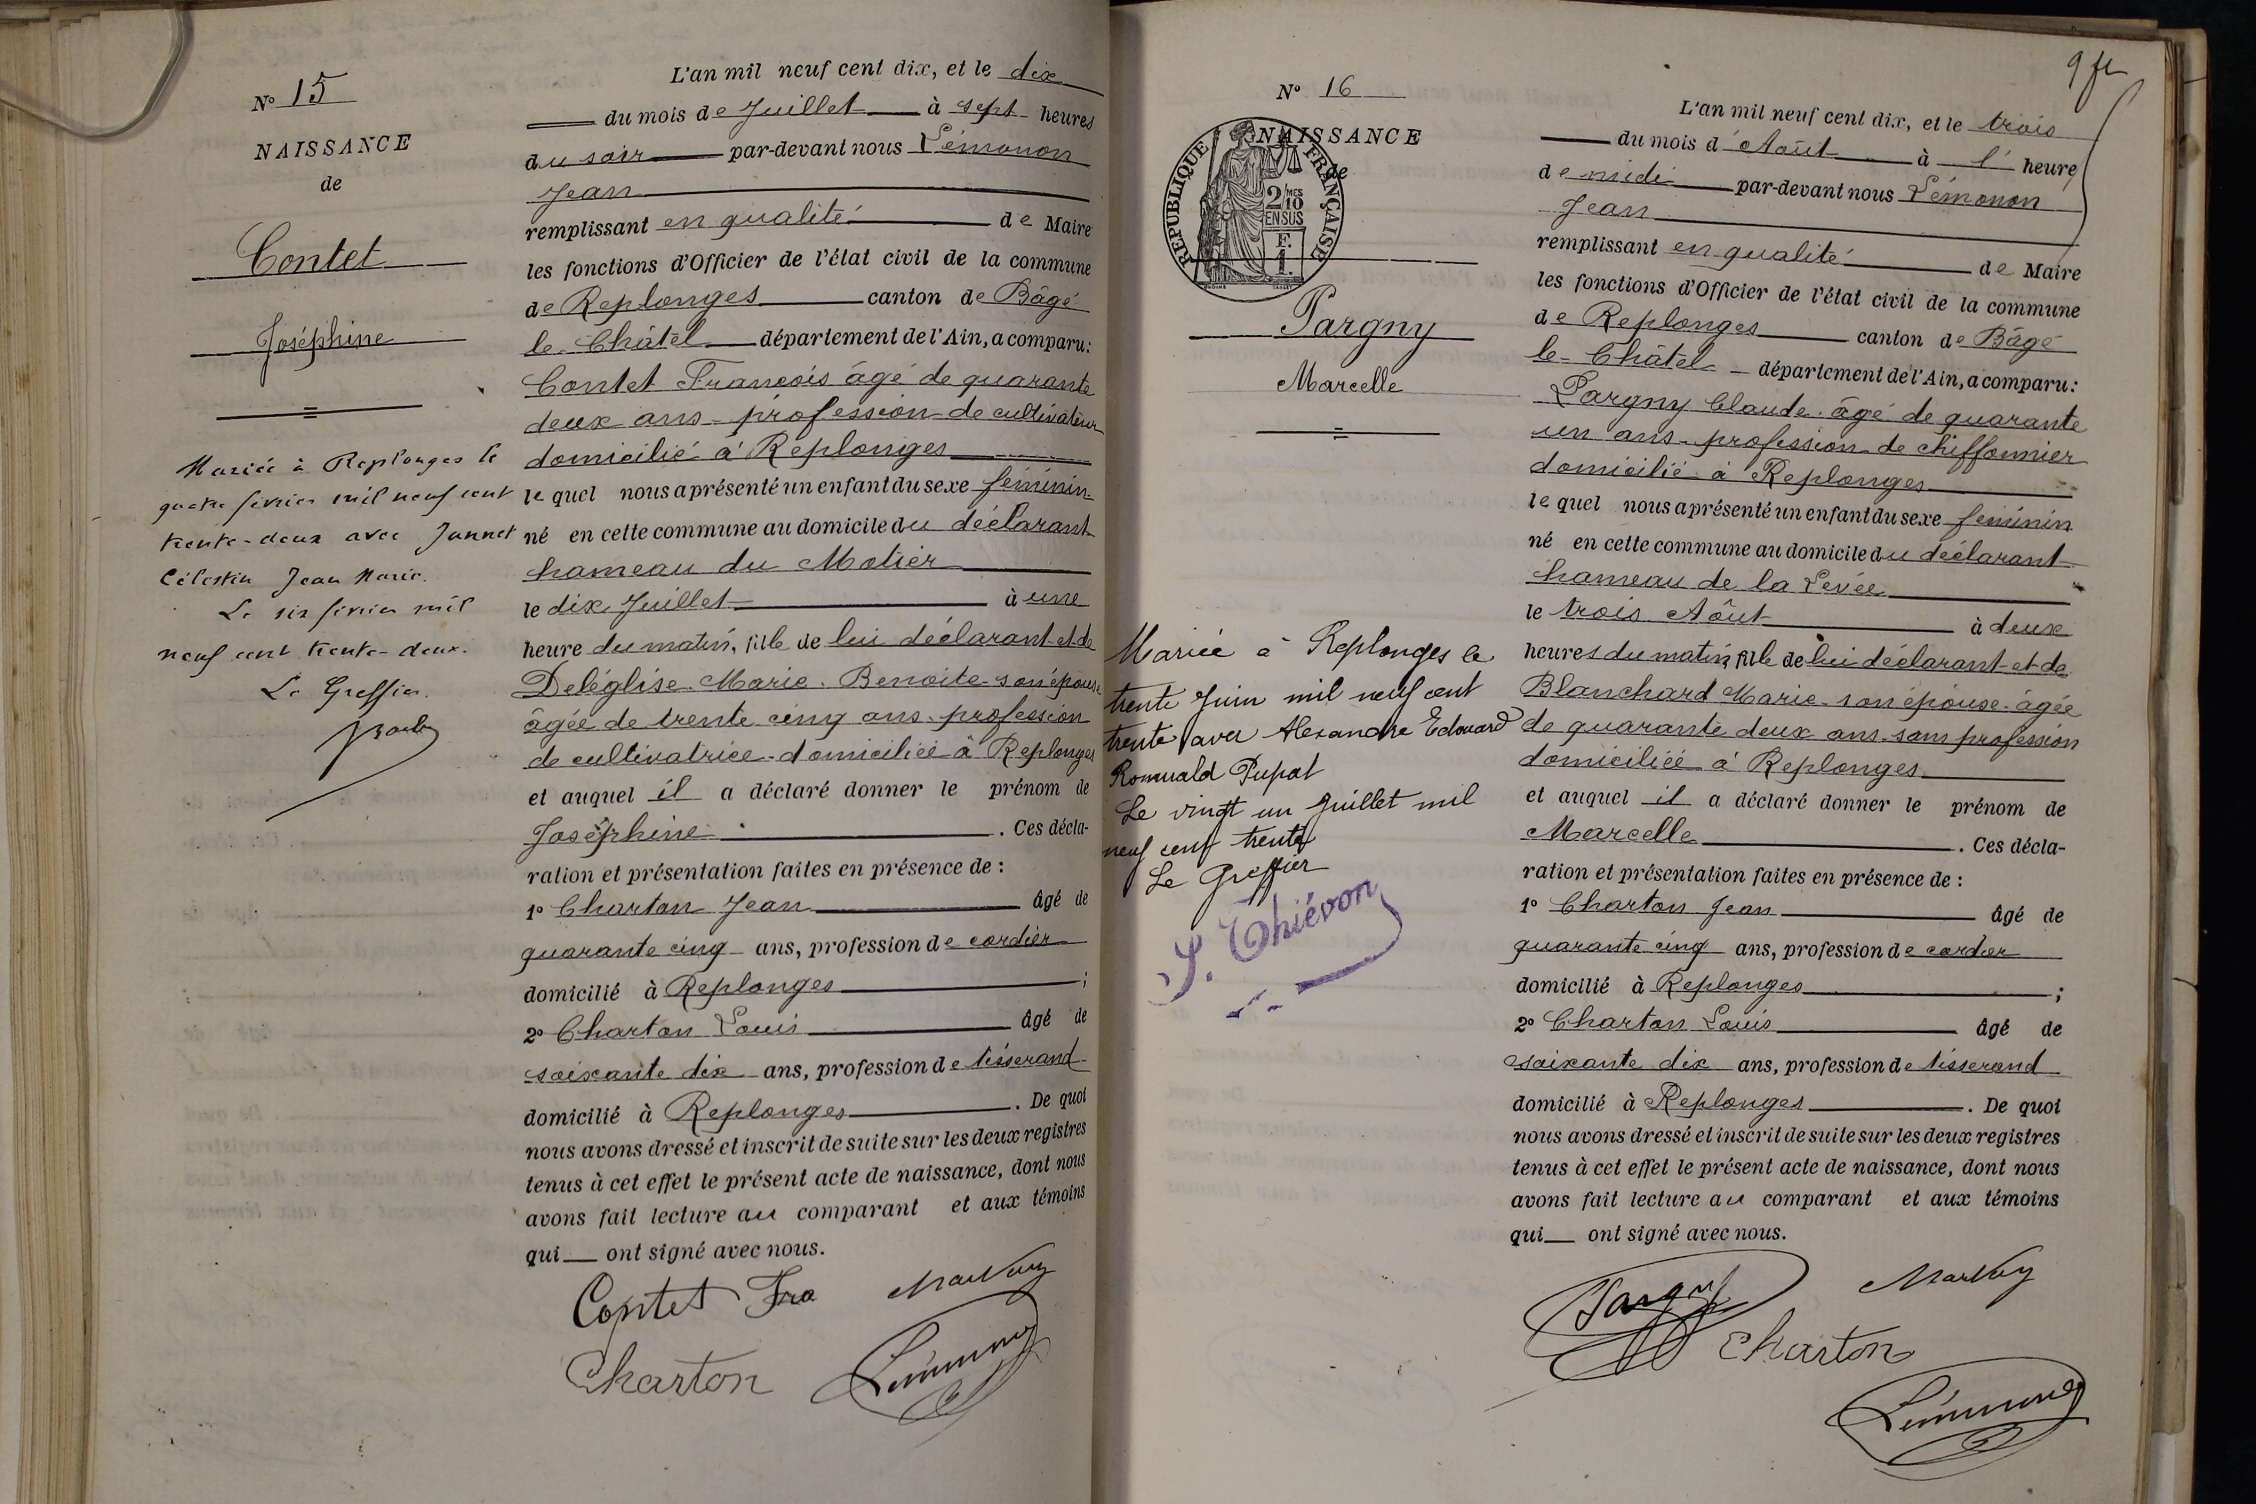 N° 15
NAISSANCE
de
Contet
Joséphine
Mariée à Replonges le
quatre février mil neuf cent
trente-deux avec Junnet
Célestin Jean Marie.
Le six février mil
neuf cent trente-deux.
Le Greffier.
L'an mil neuf cent dix, et le dix
du mois de Juillet à sept heures
du soir par-devant nous Lémonon
Jean
remplissant en qualité de Maire
les fonctions d'Officier de l'état civil de la commune
de Replonges canton de Bâgé
le Châtel département de l'Ain, a comparu:
Contet François âgé de quarante
deux ans profession de cultivateur
domicilié à Replonges
lequel nous a présenté un enfant du sexe féminin
né en cette commune au domicile du déclarant
hameau du Motier
le dix Juillet à une
heure du matin, fille de lui déclarant et de
Deléglise Marie Benoite son épouse
âgée de trente cinq ans profession
de cultivatrice domiciliée à Replonges
et auquel il a déclaré donner le prénom de
Joséphine . Ces décla-
ration et présentation faites en présence de :
1° Charton Jean âgé de
quarante cinq ans, profession de cordier
domicilié à Replonges ;
2° Charton Louis âgé de
soixante dix ans, profession de tisserand
domicilié à Replonges . De quoi
nous avons dressé et inscrit de suite sur les deux registres
tenus à cet effet le présent acte de naissance, dont nous
avons fait lecture au comparant et aux témoins
qui ont signé avec nous.
Contet Fra
Charton Lémonon
9
N° 16
NAISSANCE
de
RÉPUBLIQUE FRANÇAISE
2/10 MES
EN SUS
F.
1.
Pargny
Marcelle
Mariée à Replonges le
trente Juin mil neuf cent
trente avec Alexandre Edouard
Romuald Pupat
Le vingt un Juillet mil
neuf cent trente
Le Greffier
S. Thiévon
L'an mil neuf cent dix, et le trois
du mois d'Août à l' heure
de midi par-devant nous Lémonon
Jean
remplissant en qualité de Maire
les fonctions d'Officier de l'état civil de la commune
de Replonges canton de Bâgé
le-Châtel département de l'Ain, a comparu:
Pargny Claude âgé de quarante
un ans profession de chiffonnier
domicilié à Replonges
lequel nous a présenté un enfant du sexe féminin
né en cette commune au domicile du déclarant
hameau de la Levée
le trois Aôut à deux
heures du matin fille de lui déclarant et de
Blanchard Marie son épouse âgée
de quarante deux ans sans profession
domiciliée à Replonges
et auquel il a déclaré donner le prénom de
Marcelle . Ces décla-
ration et présentation faites en présence de :
1° Charton Jean âgé de
quarante cinq ans, profession de cordier
domicilié à Replonges ;
2° Charton Louis âgé de
soixante dix ans, profession de tisserand
domicilié à Replonges . De quoi
nous avons dressé et inscrit de suite sur les deux registres
tenus à cet effet le présent acte de naissance, dont nous
avons fait lecture au comparant et aux témoins
qui ont signé avec nous.
Pargny
Charton
Lémonon